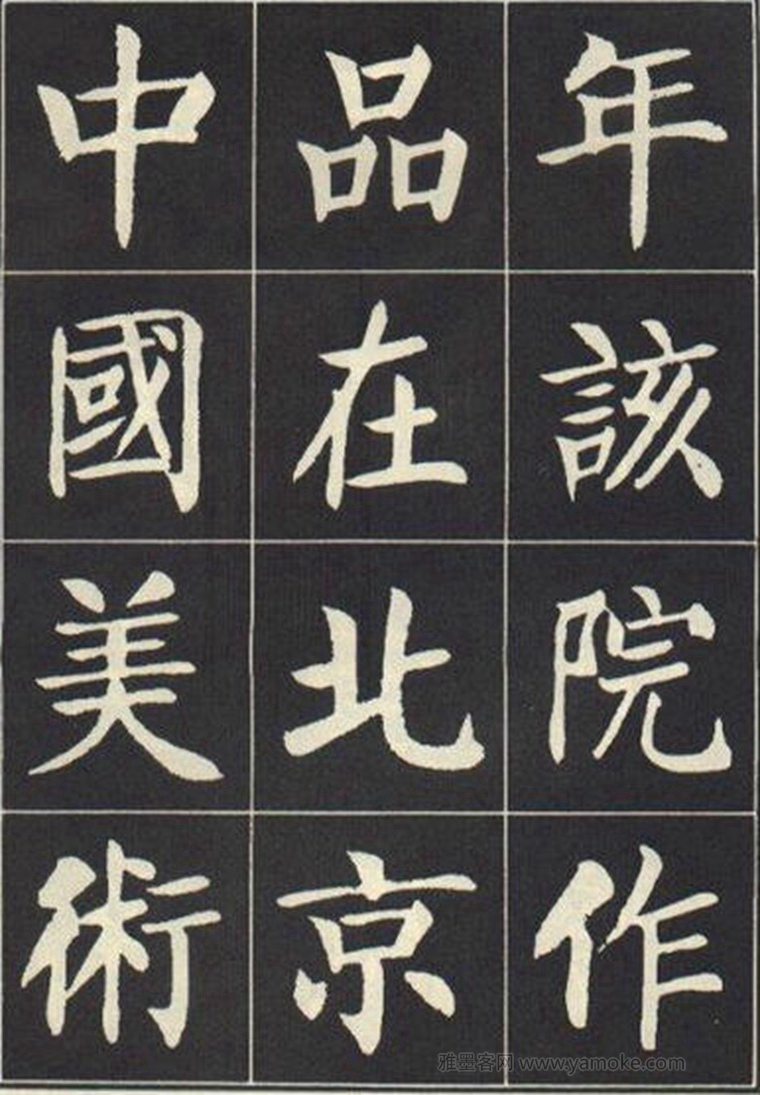 年該院作
品在北京
中國美術
雅墨客网 www.yamoke.com